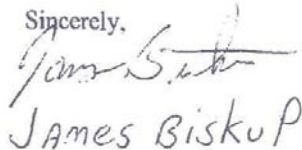 Sincerely,
JAMES BISKUP